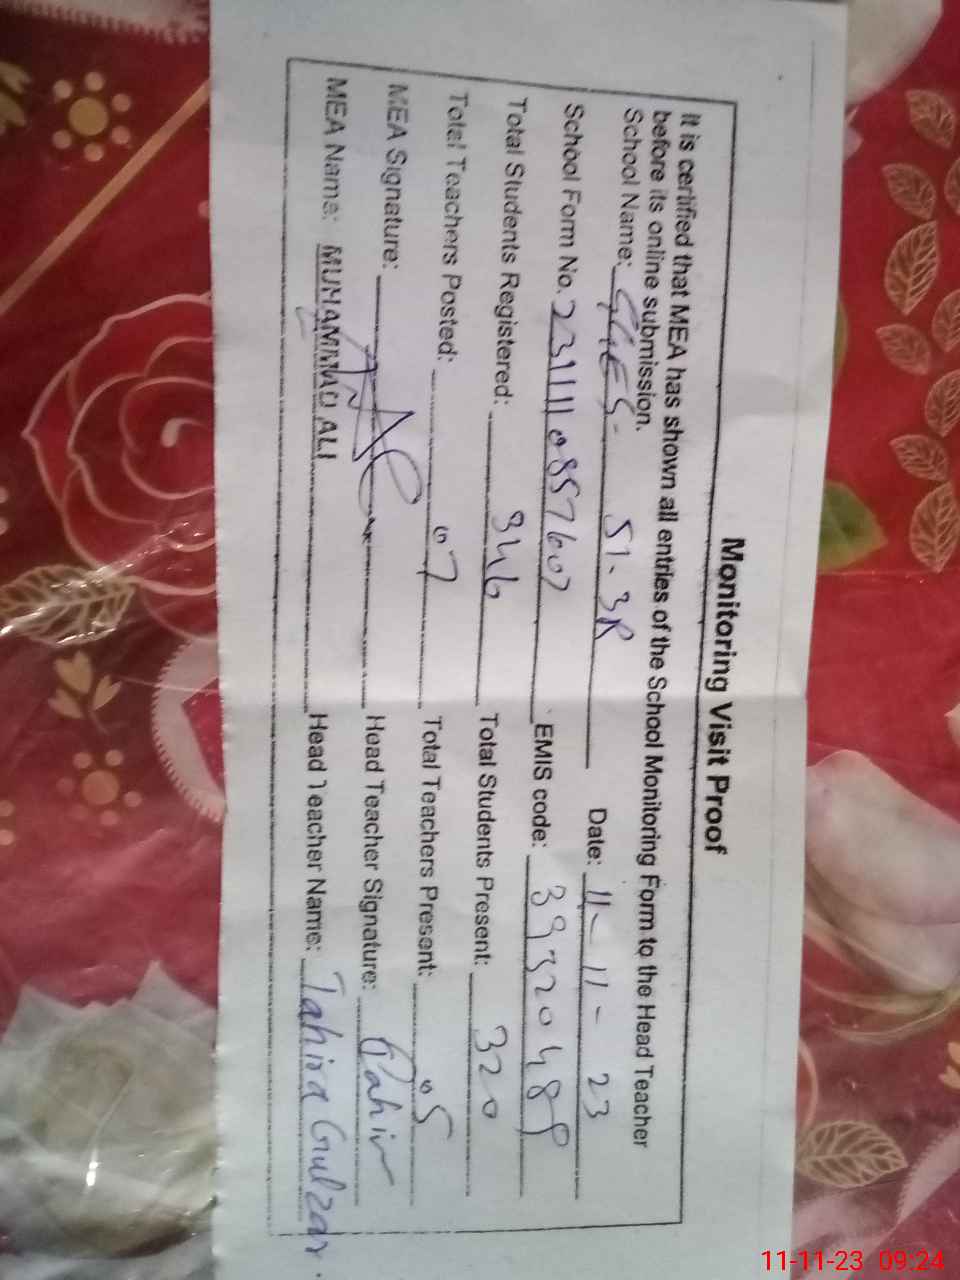 Monitoring Visit Proof
It is certified that MEA has shown all entries of the School Monitoring Form to the Head Teacher
before its online submission.
School Name: GGES- 51-3R Date: 11-11-23
School Form No. 2311110857607 EMIS code: 39320489
Total Students Registered: 346 Total Students Present: 320
Total Teachers Posted: 07 Total Teachers Present: 05
MEA Signature: Head Teacher Signature: Tahir
MEA Name: MUHAMMAD ALI Head Teacher Name: Tahira Gulzar
11-11-23 09:24